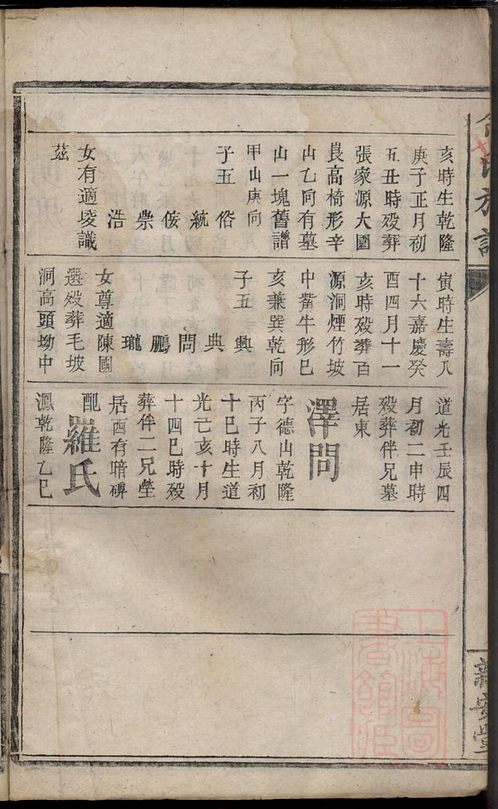 亥時生乾隆
庚子正月初
五丑時殁葬
張家源大圍
崀高椅形辛
山乙向有墓
山一塊舊譜
甲山庚向
子五 俗
統
侫
崇
浩
女有適崚識
茲
寅時生壽八
十六嘉慶癸
酉四月十一
亥時殁葬百
源洞煙竹坡
中黨牛形巳
亥兼巽乾向
子五 興
典
問
鵬
瓏
女尊適陳國
選殁葬毛坡
洞高頭坳中
道光壬辰四
月初二申時
殁葬伴兄墓
居東
澤問
字德山乾隆
丙子八月初
十巳時生道
光己亥十月
十四巳時殁
葬伴二兄塋
居酉有暗碑
配羅氏
鳳乾隆乙巳
氏族譜